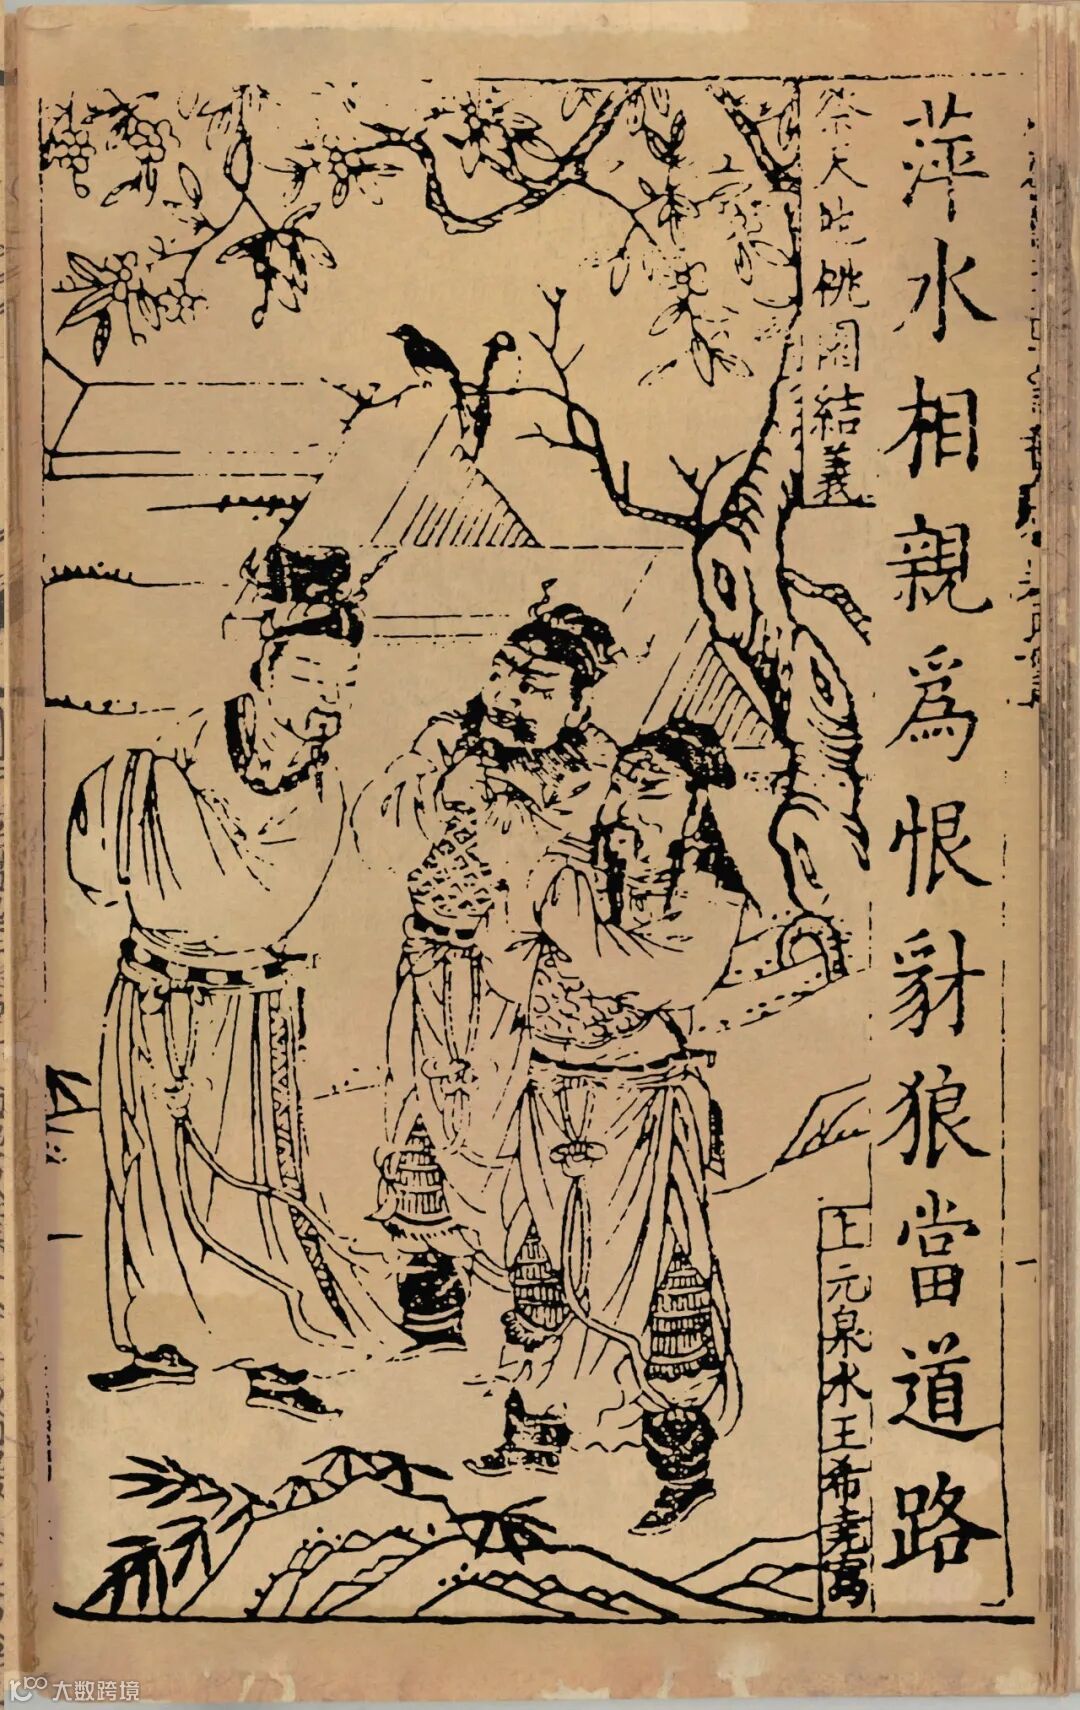 萍水相親爲恨豺狼當道路
祭天地桃園結義
上元泉水王希堯寫
大数跨境